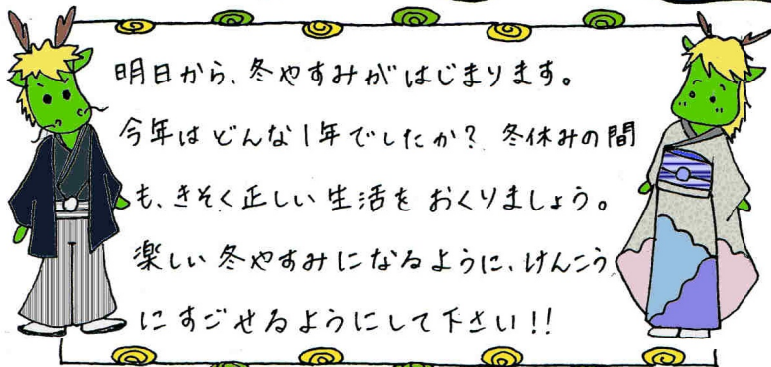 明日から、冬やすみがはじまります。
今年はどんな1年でしたか？ 冬休みの間
も、きそく正しい生活をおくりましょう。
楽しい冬やすみになるように、けんこう
にすごせるようにして下さい!!